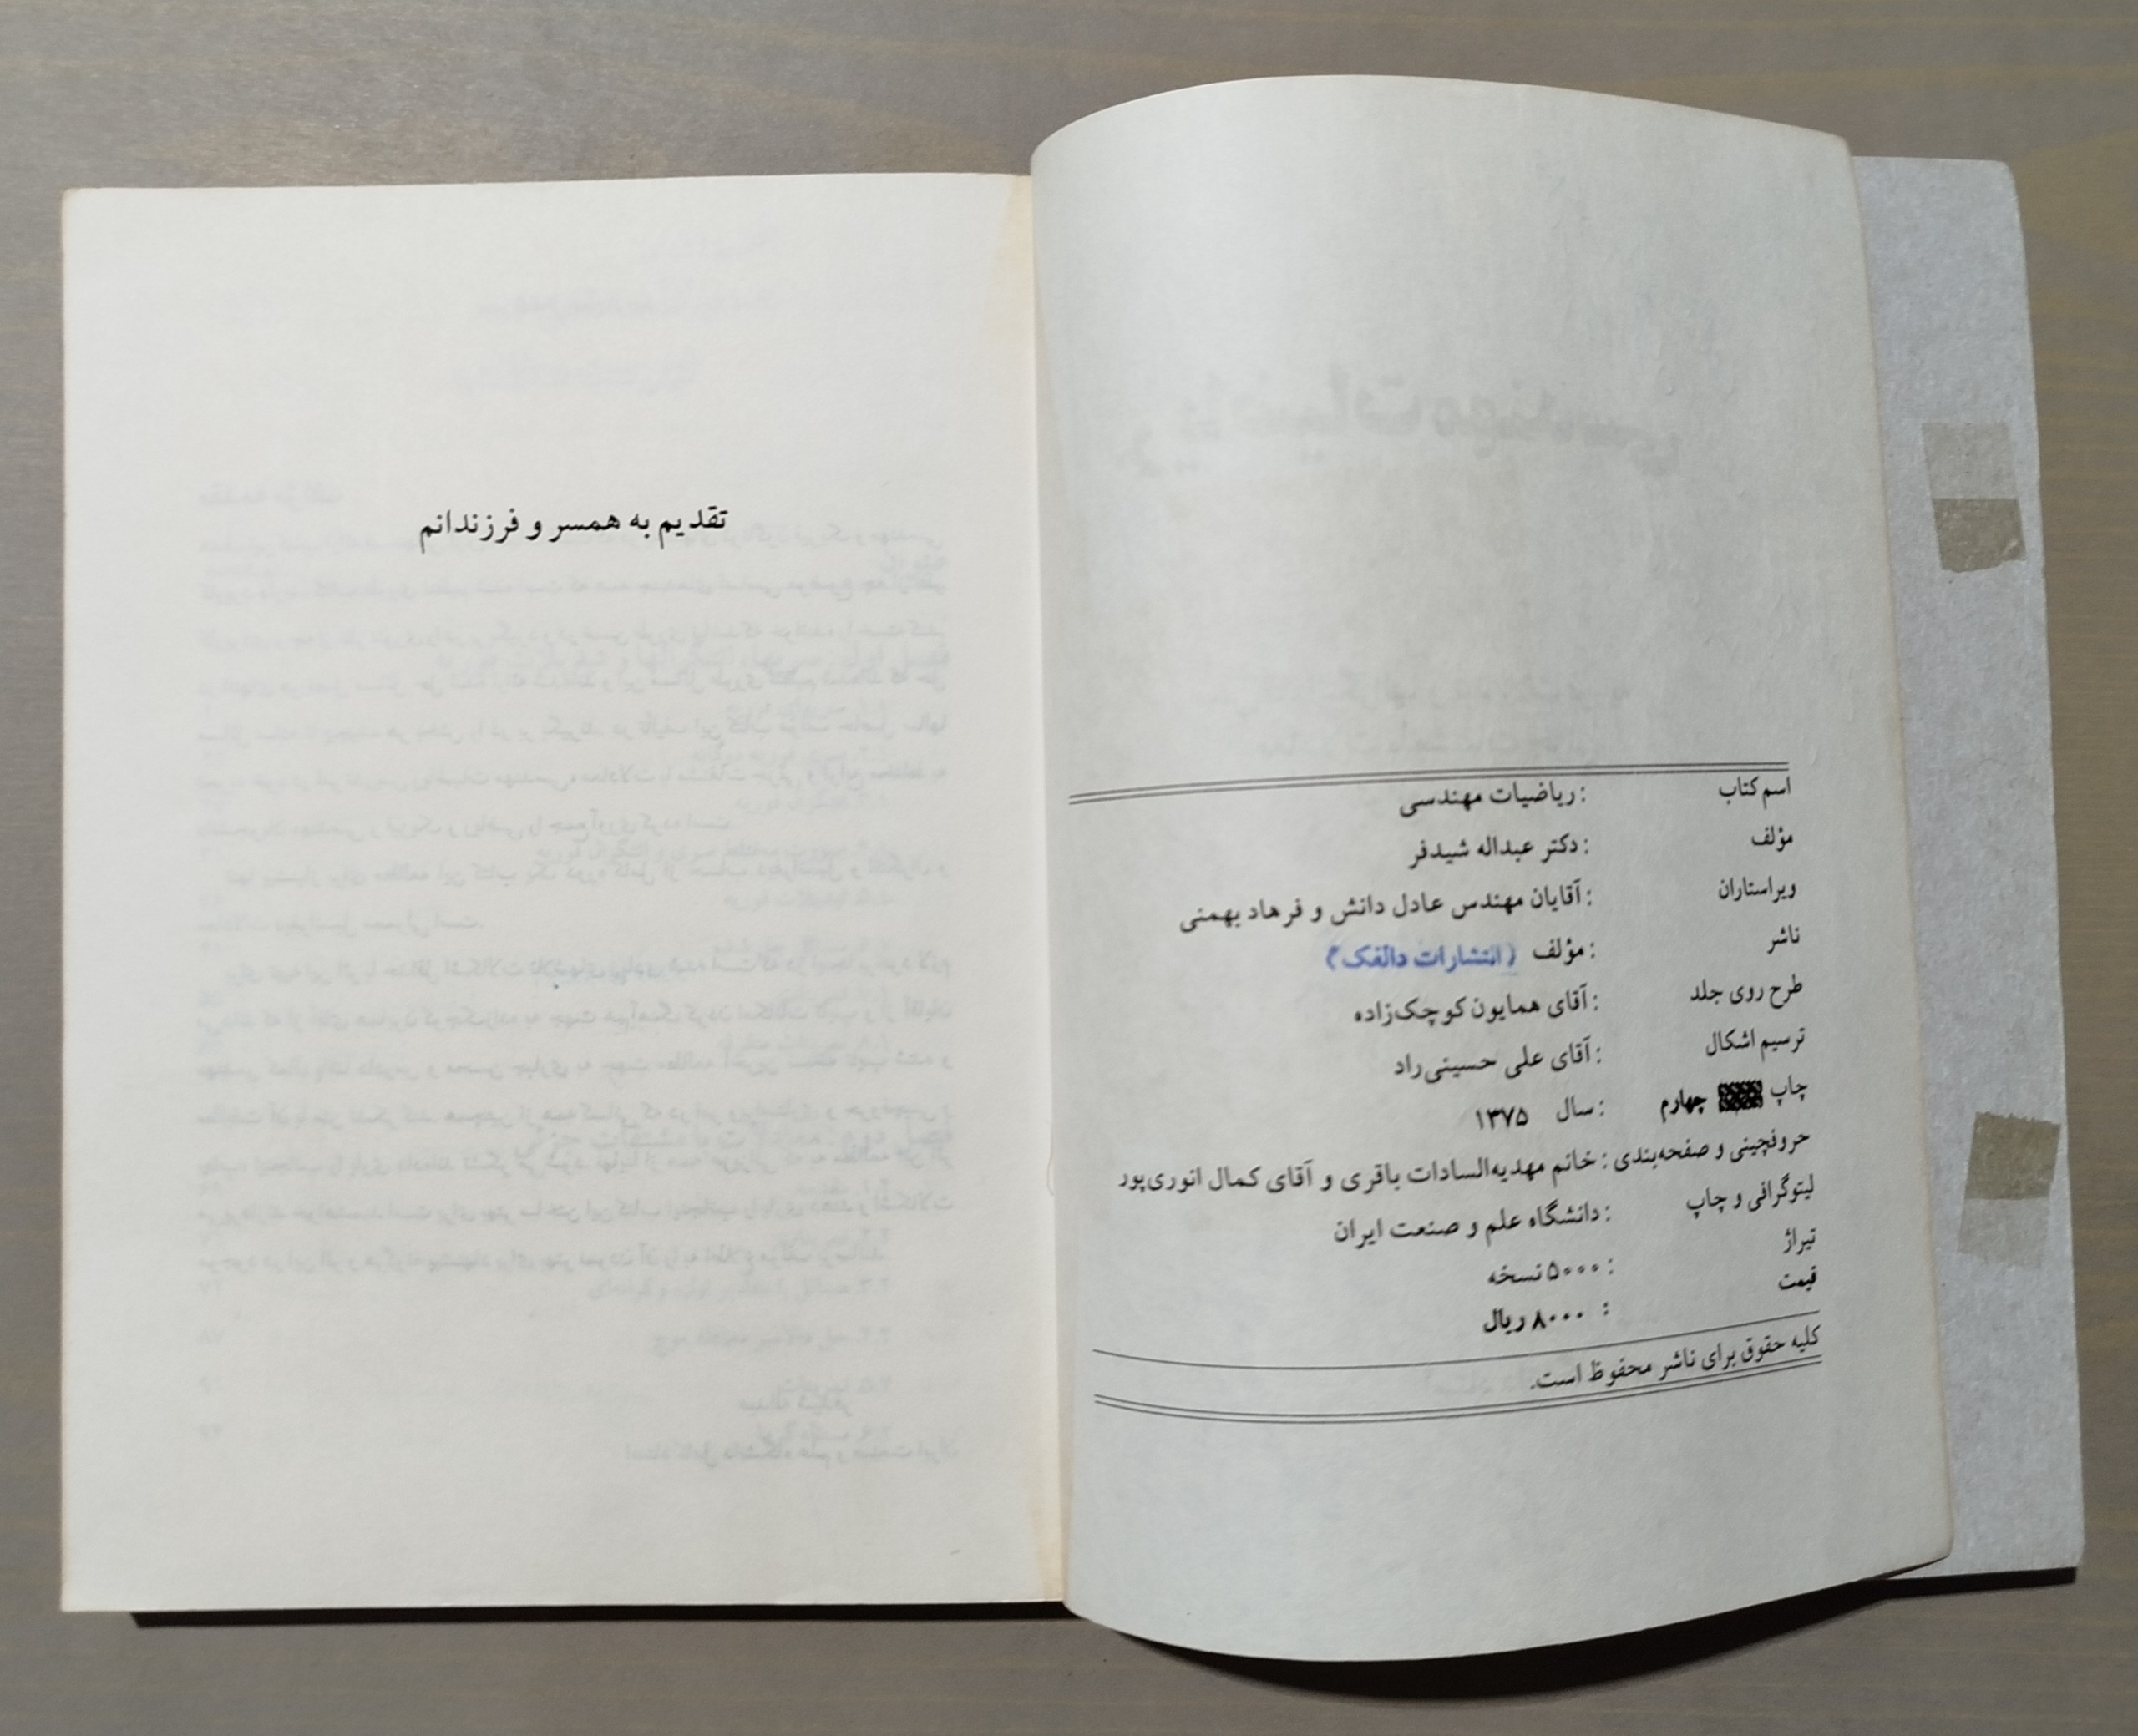 اسم کتاب : ریاضیات مهندسی
مؤلف : دکتر عبداله شیدفر
ویراستاران : آقایان مهندس عادل دانش و فرهاد بهمنی
ناشر : مؤلف (انتشارات دالفک)
طرح روی جلد : آقای همایون کوچک‌زاده
ترسیم اشکال : آقای علی حسینی‌راد
چاپ چهارم : سال ۱۳۷۵
حروفچینی و صفحه‌بندی : خانم مهدیه‌السادات باقری و آقای کمال انوری‌پور
لیتوگرافی و چاپ : دانشگاه علم و صنعت ایران
تیراژ : ۵۰۰۰ نسخه
قیمت : ۸۰۰۰ ریال
کلیه حقوق برای ناشر محفوظ است.
تقدیم به همسر و فرزندانم